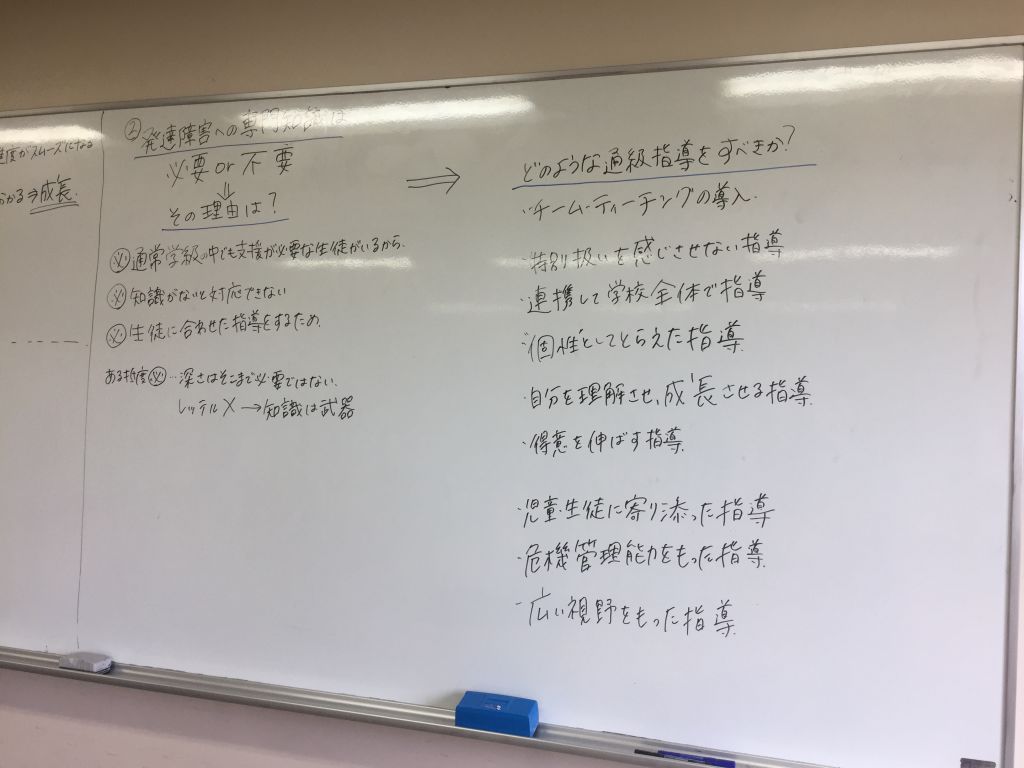 度がスムーズになる
かる⇒成長
② 発達障害への専門知識は
必要 or 不要
⇓
その理由は？
⇒
㊙通常学級の中でも支援が必要な生徒がいるから.
知識がないと対応できない
生徒に合わせた指導をするため.
ある程度 必…深さはそこまで必要ではない.
レッテル× → 知識は武器
どのような通級指導をすべきか？
・チーム・ティーチングの導入.
・特別扱いを感じさせない指導
・連携して学校全体で指導
・個性としてとらえた指導
・自分を理解させ,成長させる指導
・得意を伸ばす指導
・児童・生徒に寄り添った指導
・危機管理能力をもった指導
・広い視野をもった指導